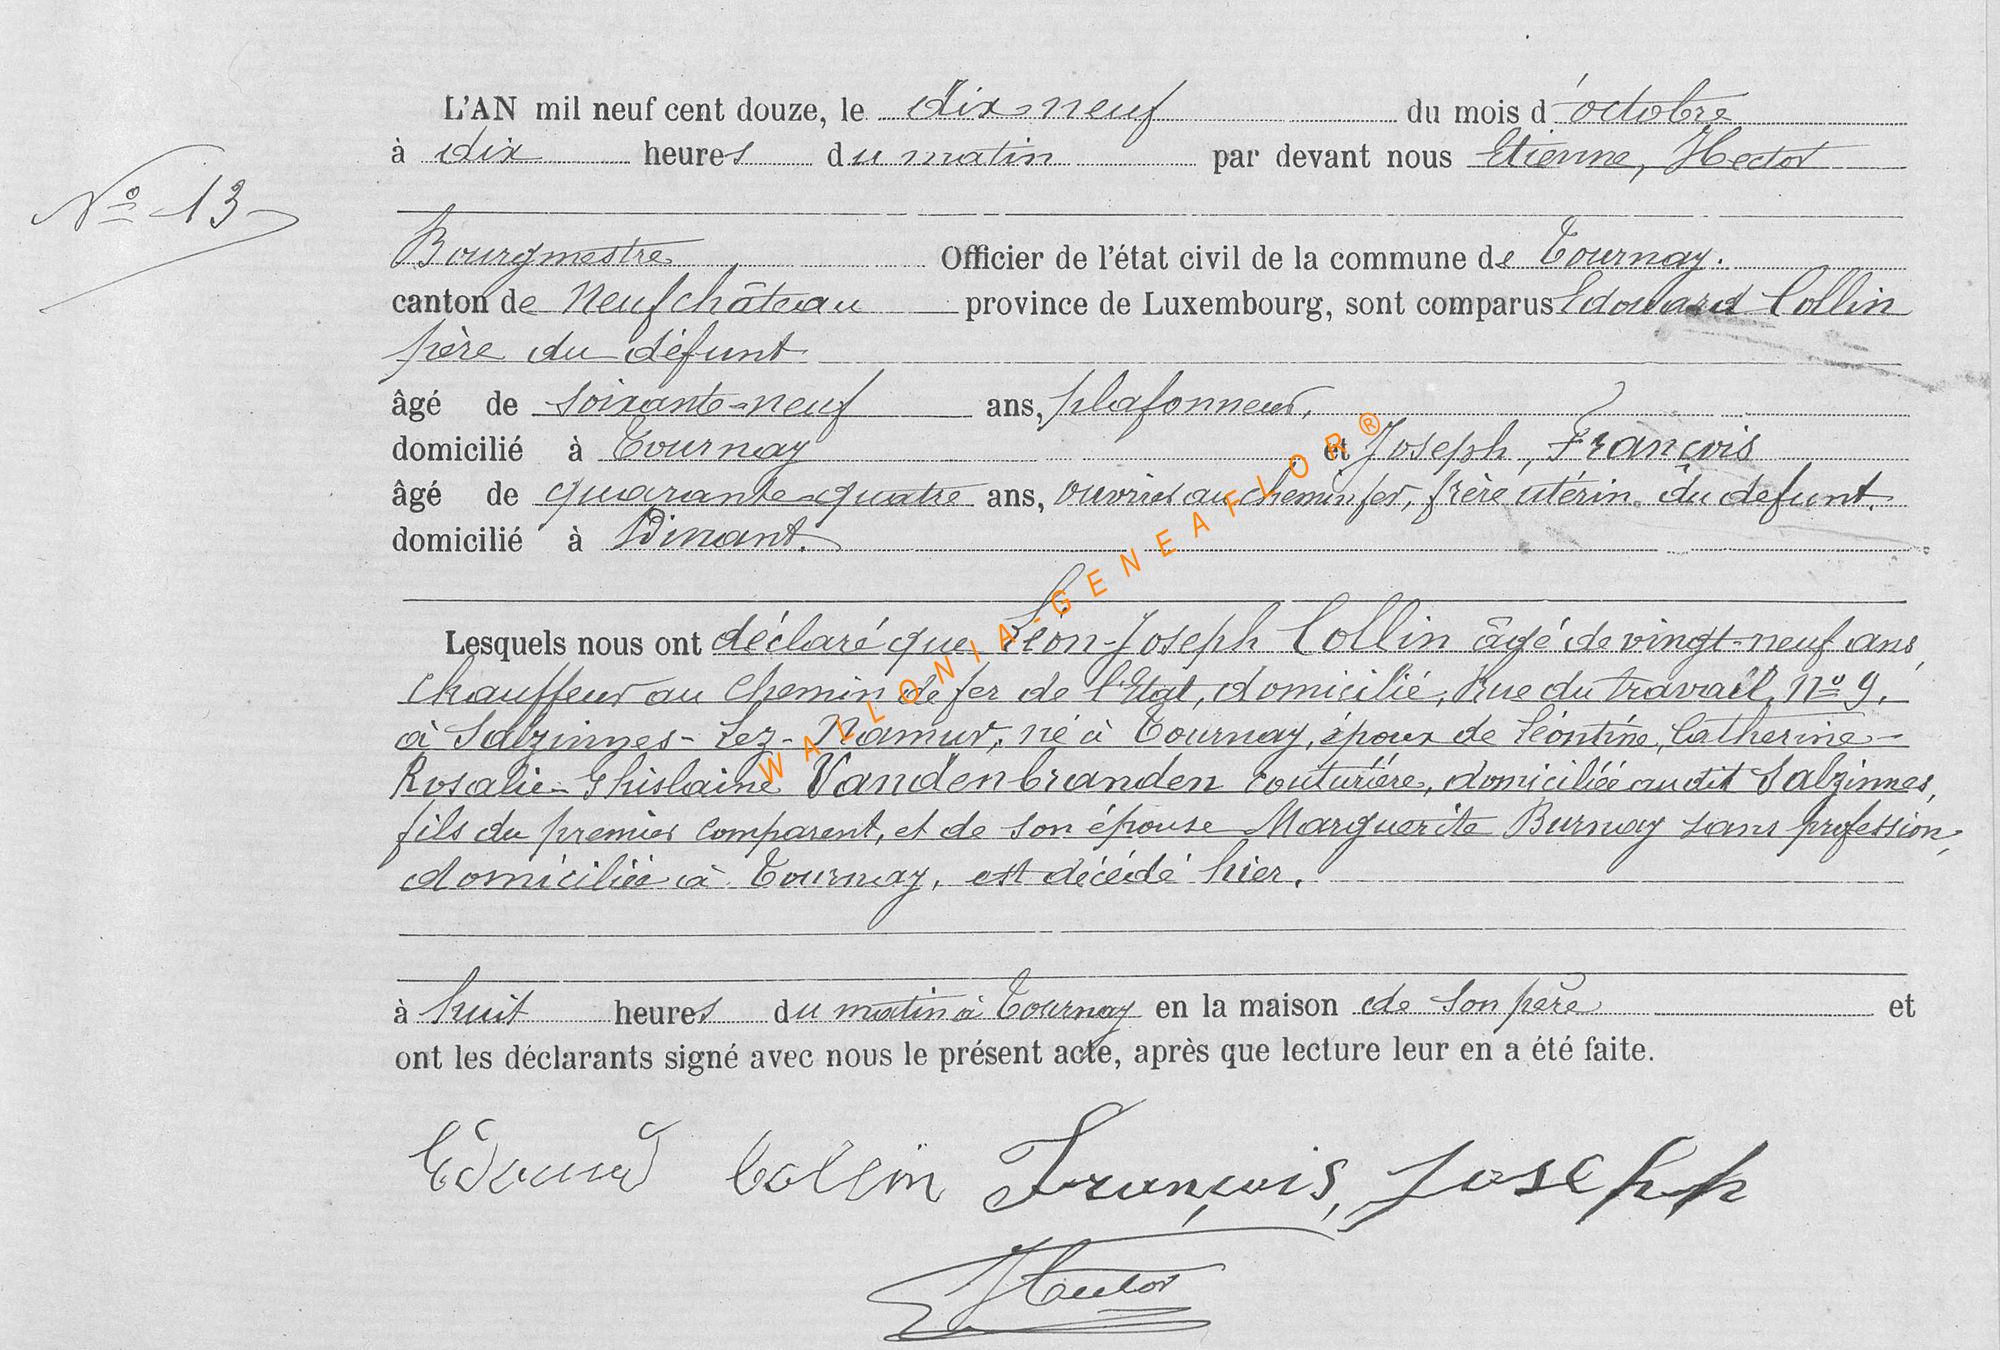 L'AN mil neuf cent douze, le dix neuf du mois d'octobre
à dix heures du matin par devant nous Etienne, Hector
N° 13
Bourgmestre Officier de l'état civil de la commune de Tournay.
canton de Neufchâteau province de Luxembourg, sont comparus Edouard Collin
père du défunt
âgé de soixante-neuf ans, plafonneur,
domicilié à Tournay et Joseph, François
âgé de quarante-quatre ans, ouvrier au chemin fer, frère utérin du défunt.
domicilié à Dinant.
Lesquels nous ont déclaré que Léon-Joseph Collin âgé de vingt-neuf ans,
chauffeur au chemin de fer de l'Etat, domicilié, Rue du travail, N° 9,
à Salzinnes-Lez-Namur, né à Tournay, époux de Léontine, Catherine-
Rosalie-Ghislaine Vandenbranden couturière, domiciliée audit Salzinnes,
fils du premier comparent, et de son épouse Marguerite Burnay sans profession,
domiciliée à Tournay, est décédé hier.
à huit heures du matin à Tournay en la maison de son père et
ont les déclarants signé avec nous le présent acte, après que lecture leur en a été faite.
Edouard Collin François, Joseph
Hector
WALLONIA-GENEAFLOR®